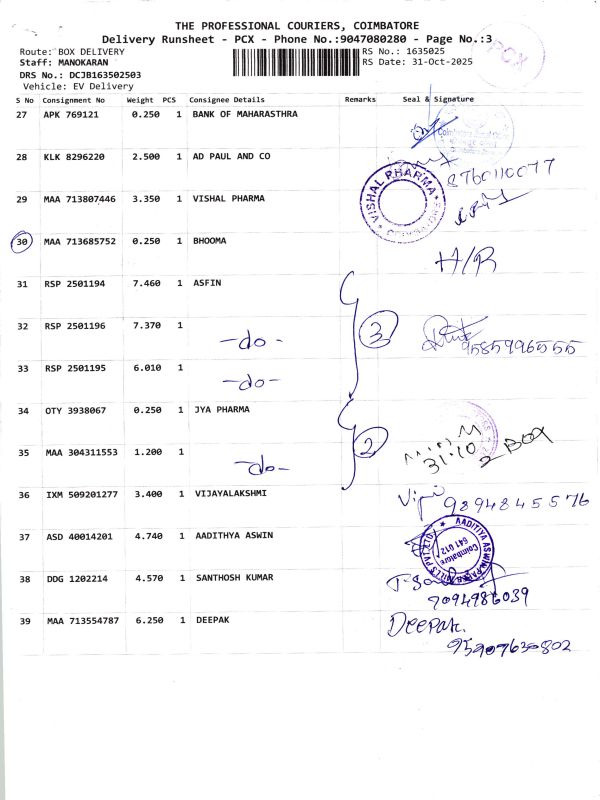 THE PROFESSIONAL COURIERS, COIMBATORE
Delivery Runsheet - PCX - Phone No.:9047080280 - Page No.:3
PCX
Route: BOX DELIVERY
RS No.: 1635025
Staff: MANOKARAN
RS Date: 31-Oct-2025
DRS No.: DCJB163502503
Vehicle: EV Delivery
S No Consignment No Weight PCS Consignee Details Remarks Seal & Signature
27 APK 769121 0.250 1 BANK OF MAHARASTHRA
28 KLK 8296220 2.500 1 AD PAUL AND CO
8760110077
29 MAA 713807446 3.350 1 VISHAL PHARMA
VISHAL PHARMA COIMBATORE
30 MAA 713685752 0.250 1 BHOOMA
H/R
31 RSP 2501194 7.460 1 ASFIN
32 RSP 2501196 7.370 1 -do-
3
9585996555
33 RSP 2501195 6.010 1 -do-
34 OTY 3938067 0.250 1 JYA PHARMA
35 MAA 304311553 1.200 1 -do-
2
31.10 2 BOX
36 IXM 509201277 3.400 1 VIJAYALAKSHMI
9894845576
37 ASD 40014201 4.740 1 AADITHYA ASWIN
Coimbatore
641 012
38 DDG 1202214 4.570 1 SANTHOSH KUMAR
7094986039
39 MAA 713554787 6.250 1 DEEPAK
Deepak.
95907630802